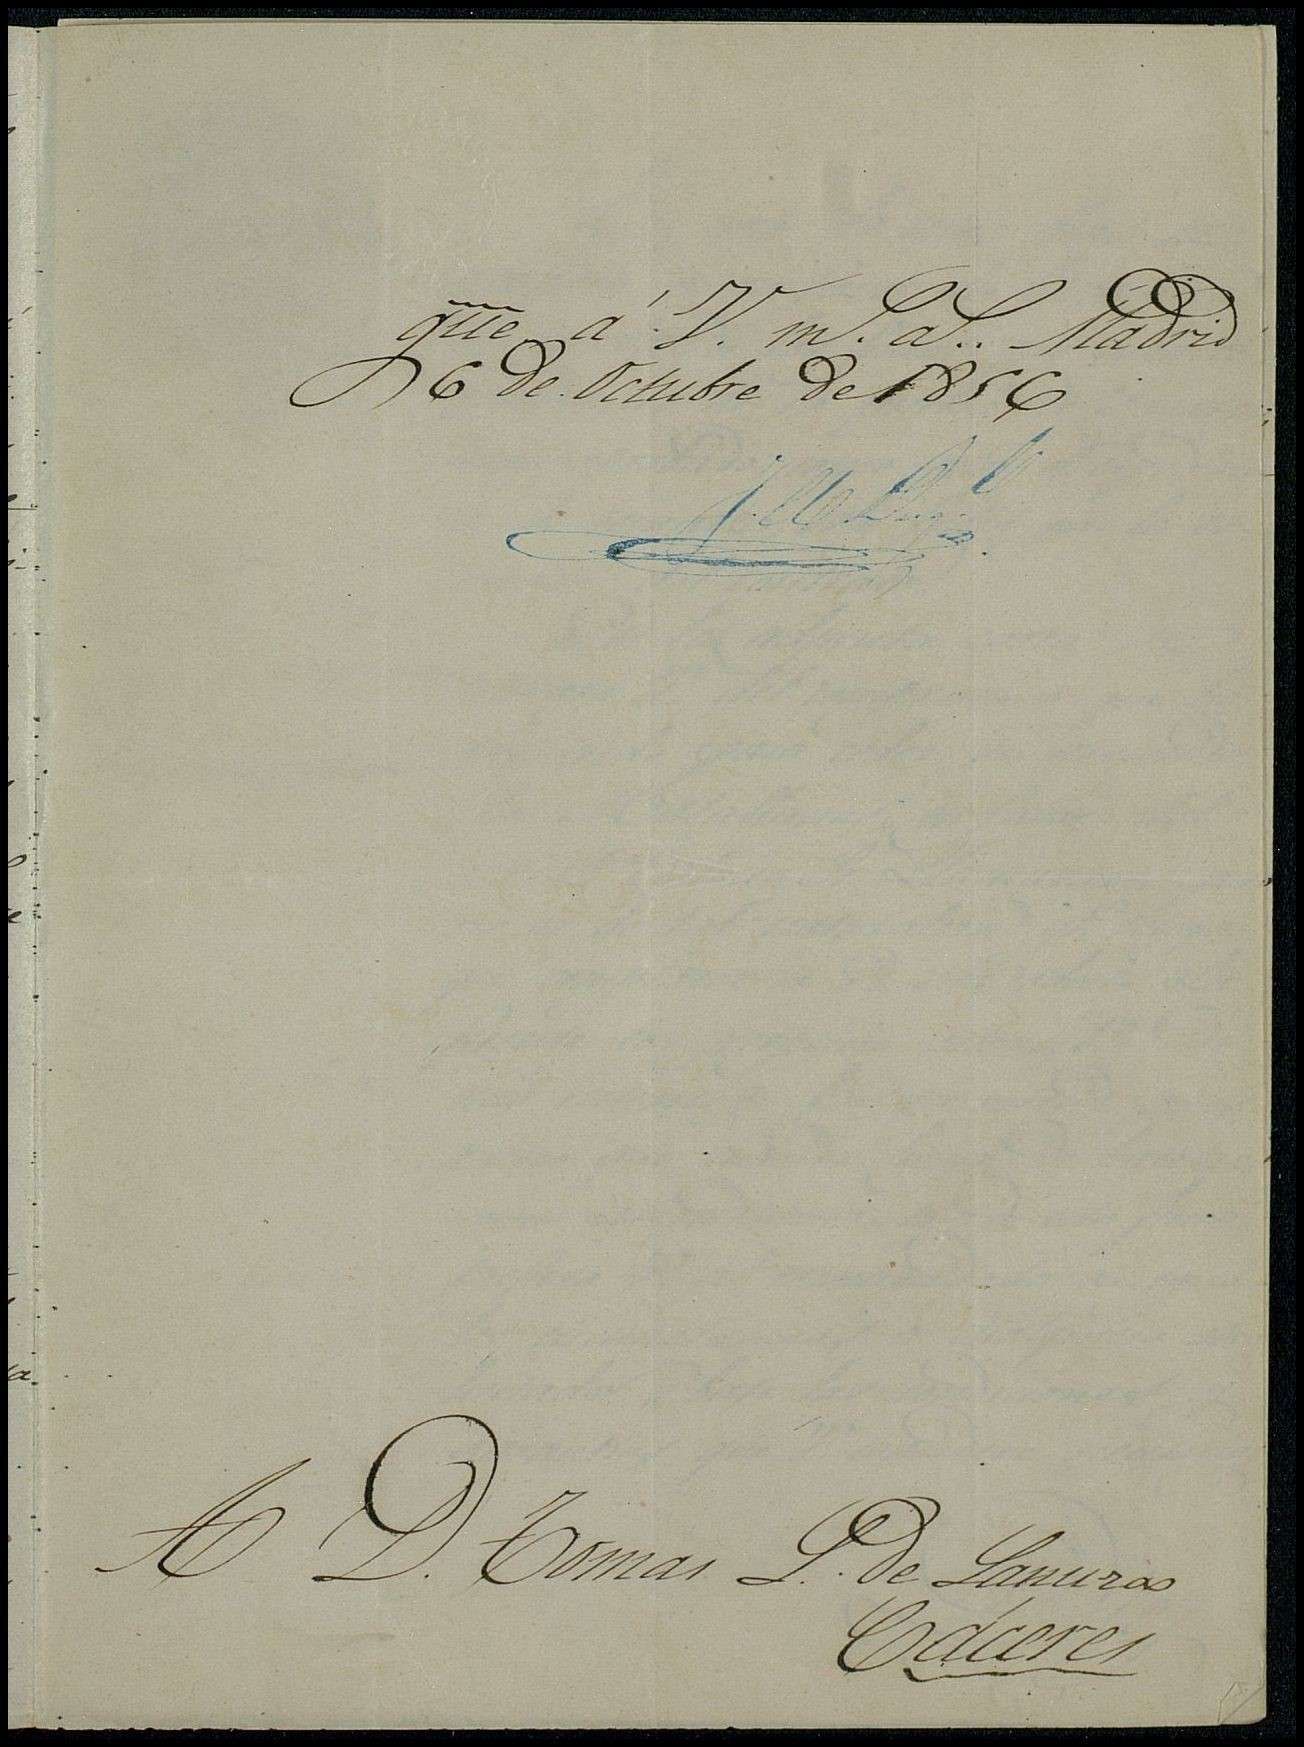 gue á V. m.s a.s. Madrid
6 de Octubre de 1856
A D. Tomas L. de Sanuzas
Cáceres